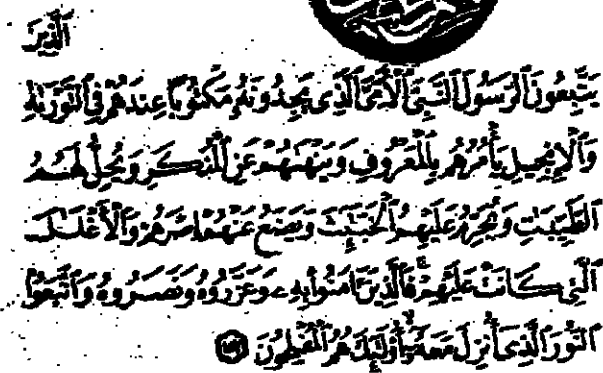 ٱلَّذِينَ
يَتَّبِعُونَ ٱلرَّسُولَ ٱلنَّبِيَّ ٱلْأُمِّيَّ ٱلَّذِى يَجِدُونَهُۥ مَكْتُوبًا عِندَهُمْ فِى ٱلتَّوْرَىٰةِ
وَٱلْإِنجِيلِ يَأْمُرُهُم بِٱلْمَعْرُوفِ وَيَنْهَىٰهُمْ عَنِ ٱلْمُنكَرِ وَيُحِلُّ لَهُمُ
ٱلطَّيِّبَـٰتِ وَيُحَرِّمُ عَلَيْهِمُ ٱلْخَبَـٰٓئِثَ وَيَضَعُ عَنْهُمْ إِصْرَهُمْ وَٱلْأَغْلَـٰلَ
ٱلَّتِى كَانَتْ عَلَيْهِمْ ۚ فَٱلَّذِينَ ءَامَنُوا۟ بِهِۦ وَعَزَّرُوهُ وَنَصَرُوهُ وَٱتَّبَعُوا۟
ٱلنُّورَ ٱلَّذِىٓ أُنزِلَ مَعَهُۥٓ ۙ أُو۟لَـٰٓئِكَ هُمُ ٱلْمُفْلِحُونَ